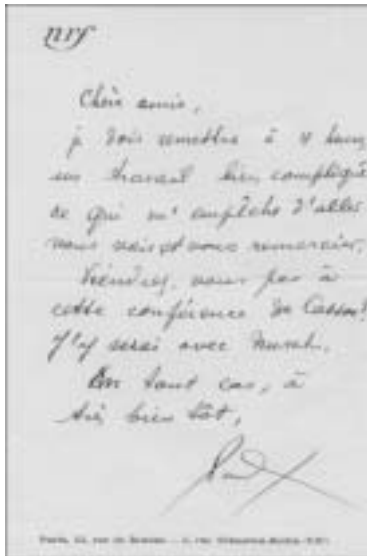 nrf
Chère amie,
je dois remettre à 4 heures
un travail bien compliqué
ce qui m'empêche d'aller
vous voir et vous remercier.
Viendrez vous pas à
cette conférence de Cassou?
J'y serai avec
En tout cas, à
très bien tôt,
Paris,